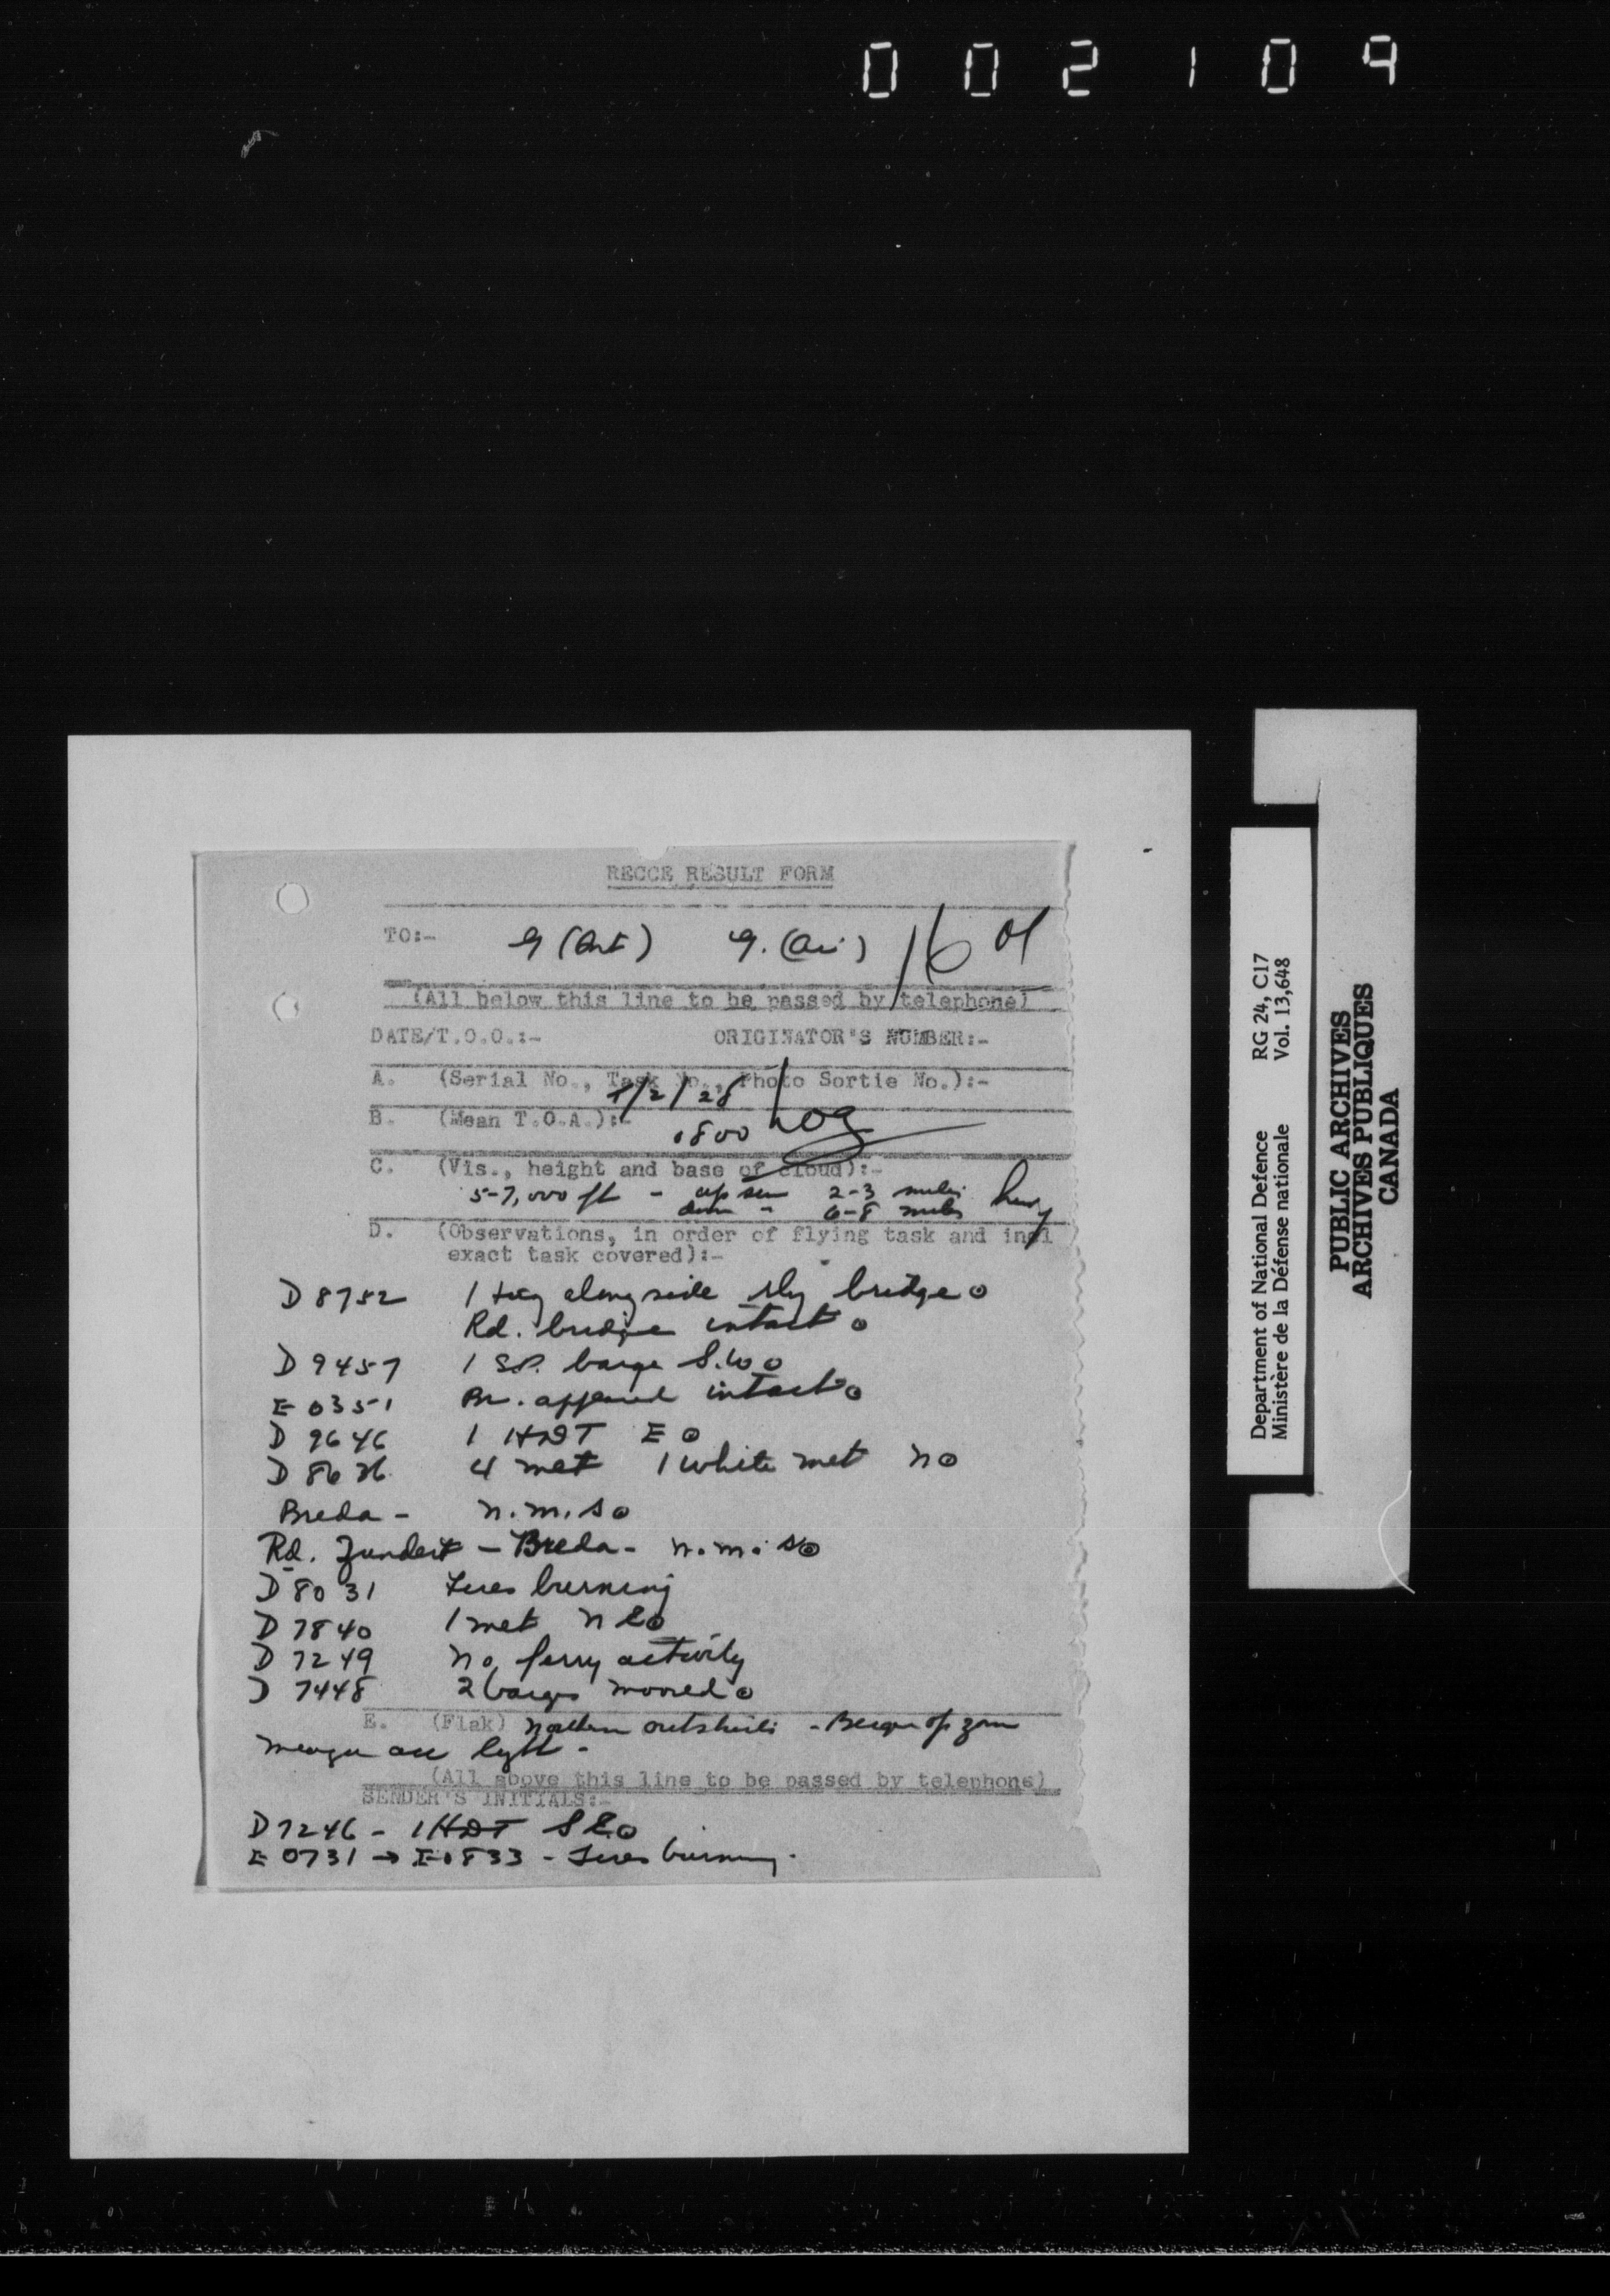 002109
RECCE RESULT FORM
TO:- G (Int) G. (Air) 16 01
(All below this line to be passed by telephone)
DATE/T.O.O.:- ORIGINATOR'S NUMBER:-
A. (Serial No., Task No., Photo Sortie No.):-
1/2/28
B. (Mean T.O.A.):-
1800 Log
C. (Vis., height and base of cloud):-
5-7,000 ft - up sun 2-3 miles
down " 6-8 miles
D. (Observations, in order of flying task and incl
exact task covered):-
D 8752 1 tug alongside rly bridge
Rd. bridge intact
D 9457 1 S.P. barge S.W
E 0351 Br. appeared intact
D 9646 1 HDT E
D 8636 4 met 1 white met N
Breda - n.m.s
Rd. Zundert - Breda - n.m.s
D 8031 Fires burning
D 7840 1 met N E
D 7249 No ferry activity
D 7448 2 barges moored
E. (Flak) Northern outskirts - Bergen op zoom
meager acc light -
(All above this line to be passed by telephone)
SENDER'S INITIALS:-
D 7246 - 1 HDT S E
E 0731 → E 0833 - Fires burning.
Department of National Defence RG 24, C17
Ministère de la Défense nationale Vol. 13,648
PUBLIC ARCHIVES
ARCHIVES PUBLIQUES
CANADA